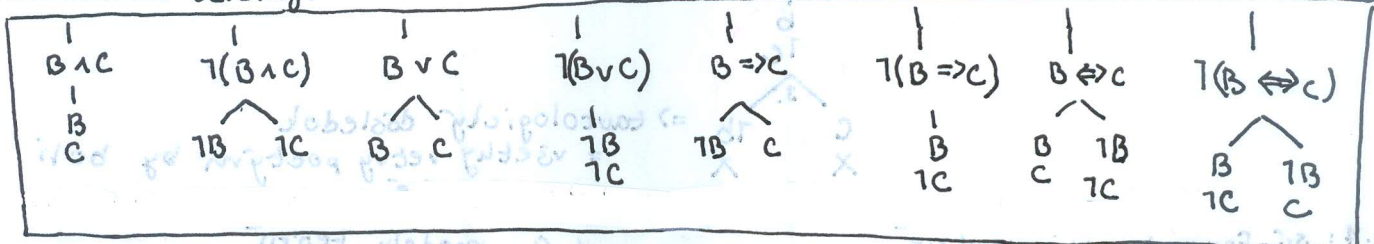 B ∧ C   ⌉(B ∧ C)   B ∨ C   ⌉(B ∨ C)   B => C   ⌉(B => C)   B <=> C   ⌉(B <=> C)
B   ⌉B   ⌉C   B   C   ⌉B   ⌉B   C   B   B   ⌉B   B   ⌉B
C   ⌉C   ⌉C   C   ⌉C   ⌉C   C